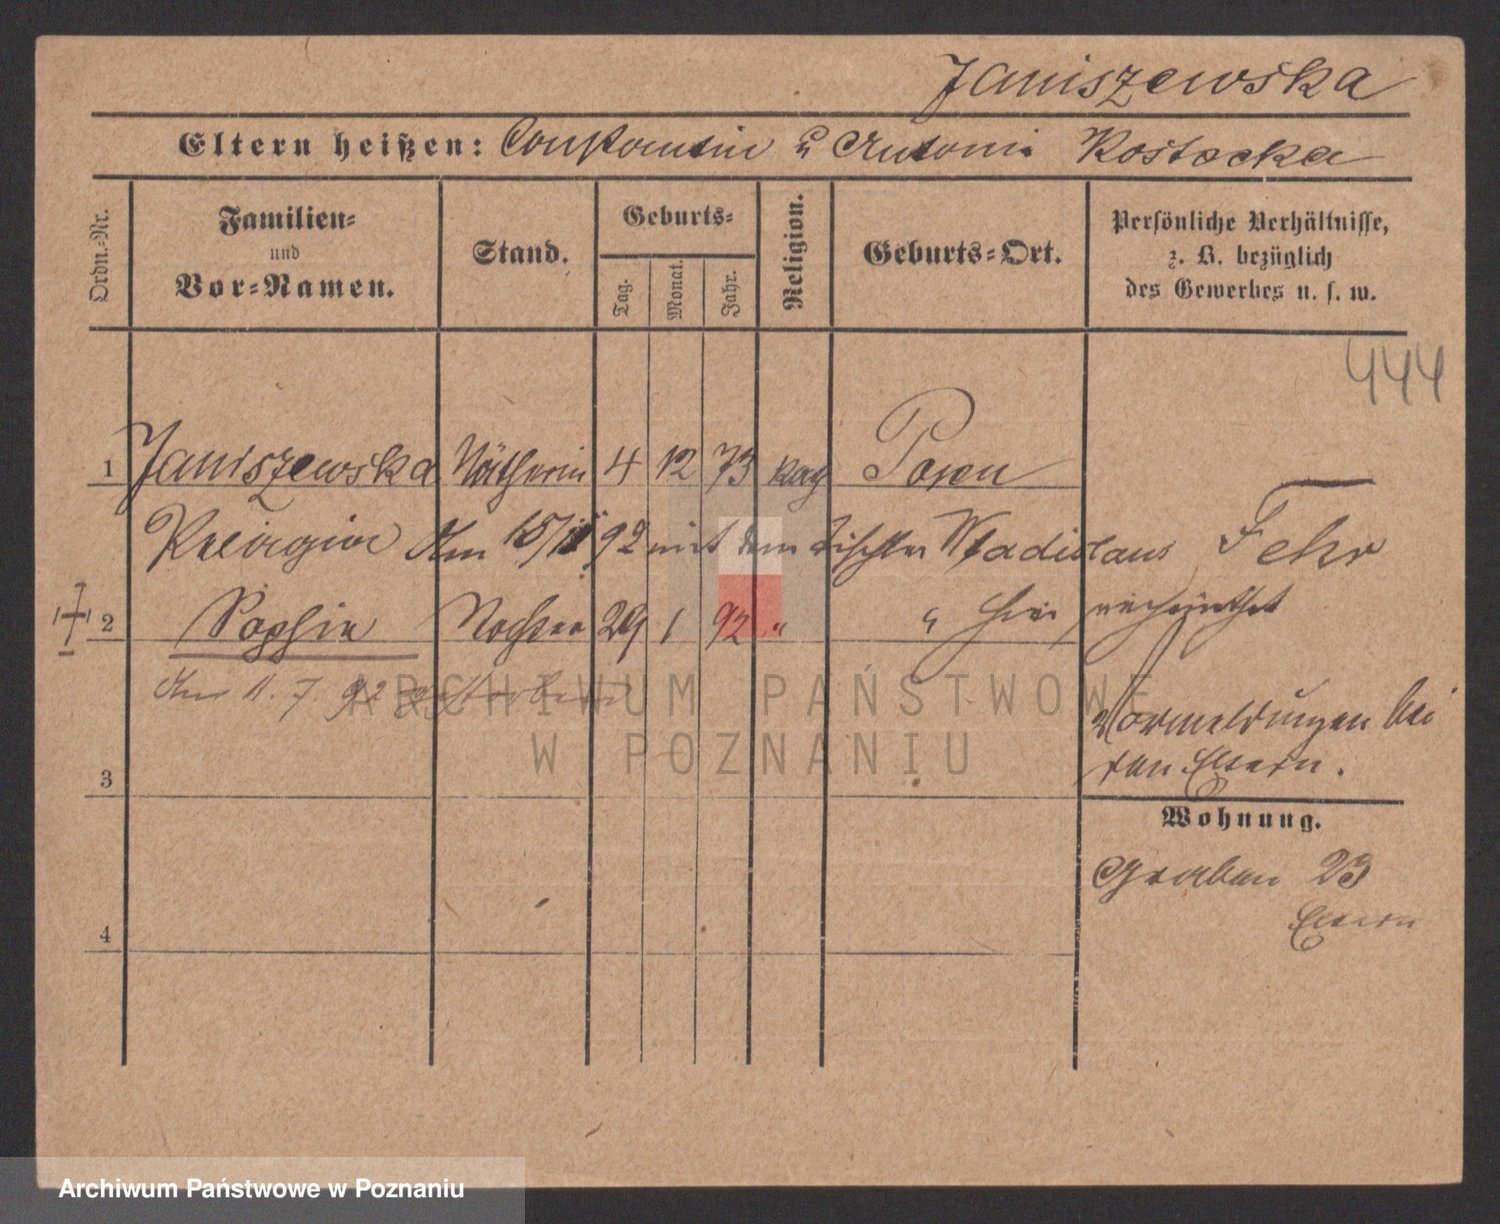 Janiszewska
Eltern heißen: Constantin u Antonie Rostocka
Ordn.-Nr.
Familien-
und
Vor-Namen.
Stand.
Geburts-
Tag.
Monat.
Jahr.
Religion.
Geburts-Ort.
Persönliche Verhältnisse,
z. B. bezüglich
des Gewerbes u. s. w.
444
1 Janiszewska Nätherin 4 12 73 kath Posen
Pelagia Am 15/11 92 mit dem Tischler Wladislaus Fehr
2 Sophie Tochter 29 1 92 " " hier verheirathet
Am 11. 7. 92 gestorben
Vormeldungen bei
den Eltern.
3
Wohnung.
Graben 23
Eltern
4
ARCHIWUM PAŃSTWOWE
W POZNANIU
Archiwum Państwowe w Poznaniu